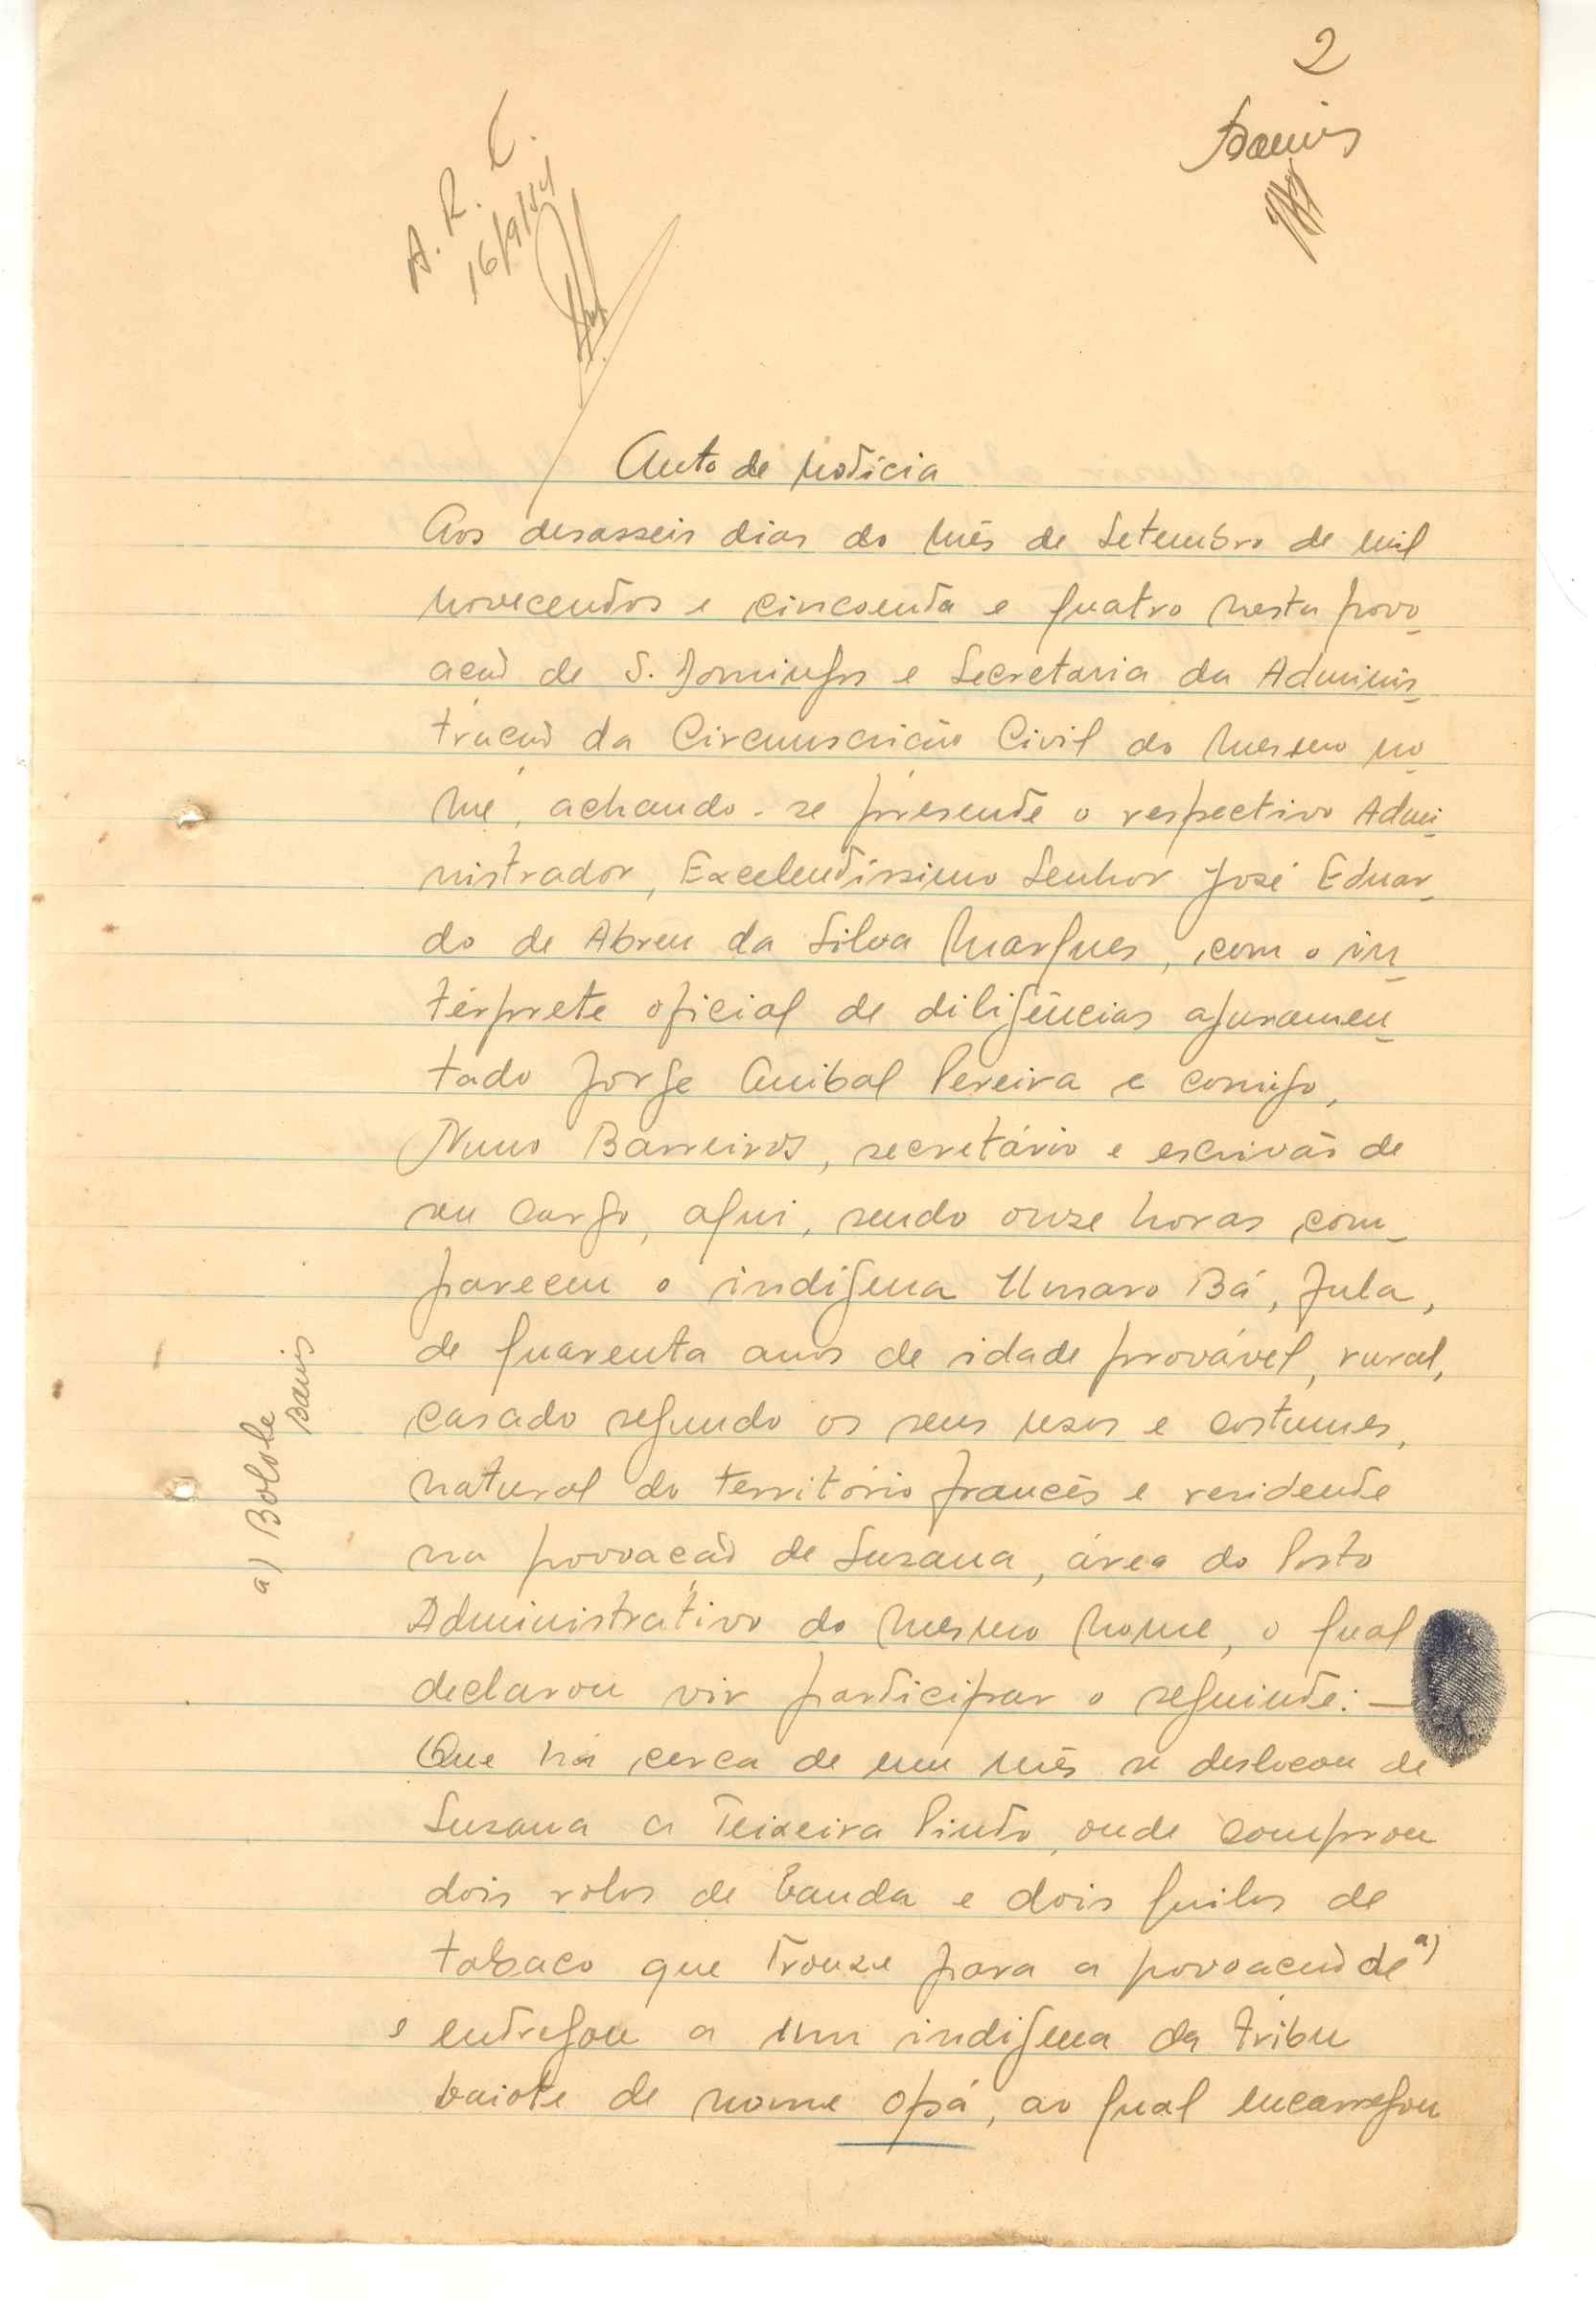 2
A. R. C.
16/9/54
Auto de notícia
Aos desasseis dias do mês de Setembro de mil
novecentos e cincoenta e quatro nesta povo-
ação de S. Domingos e Secretaria da Adminis-
tração da Circunscrição Civil do mesmo no-
me, achando-se presente o respectivo Admi-
nistrador, Excelentíssimo Senhor José Eduar-
do de Abreu da Silva Marques, com o in-
térprete oficial de diligências ajuramen-
tado Jorge Anibal Pereira e comigo,
Nuno Barreiros, secretário e escrivão de
seu cargo, aqui, sendo onze horas com-
pareceu o indígena Umaro Bá, fula,
de quarenta anos de idade provável, rural,
casado segundo os seus usos e costumes,
natural do território francês e residente
na povoação de Suzana, área do Posto
Administrativo do mesmo nome, o qual
declarou vir participar o seguinte: —
Que há cerca de um mês se deslocou de
Suzana a Teixeira Pinto, onde comprou
dois rolos de banda e dois quilos de
tabaco que trouxe para a povoação de a)
e entregou a um indígena da tribu
baiote de nome Opá, ao qual encarregou
a) Bolole